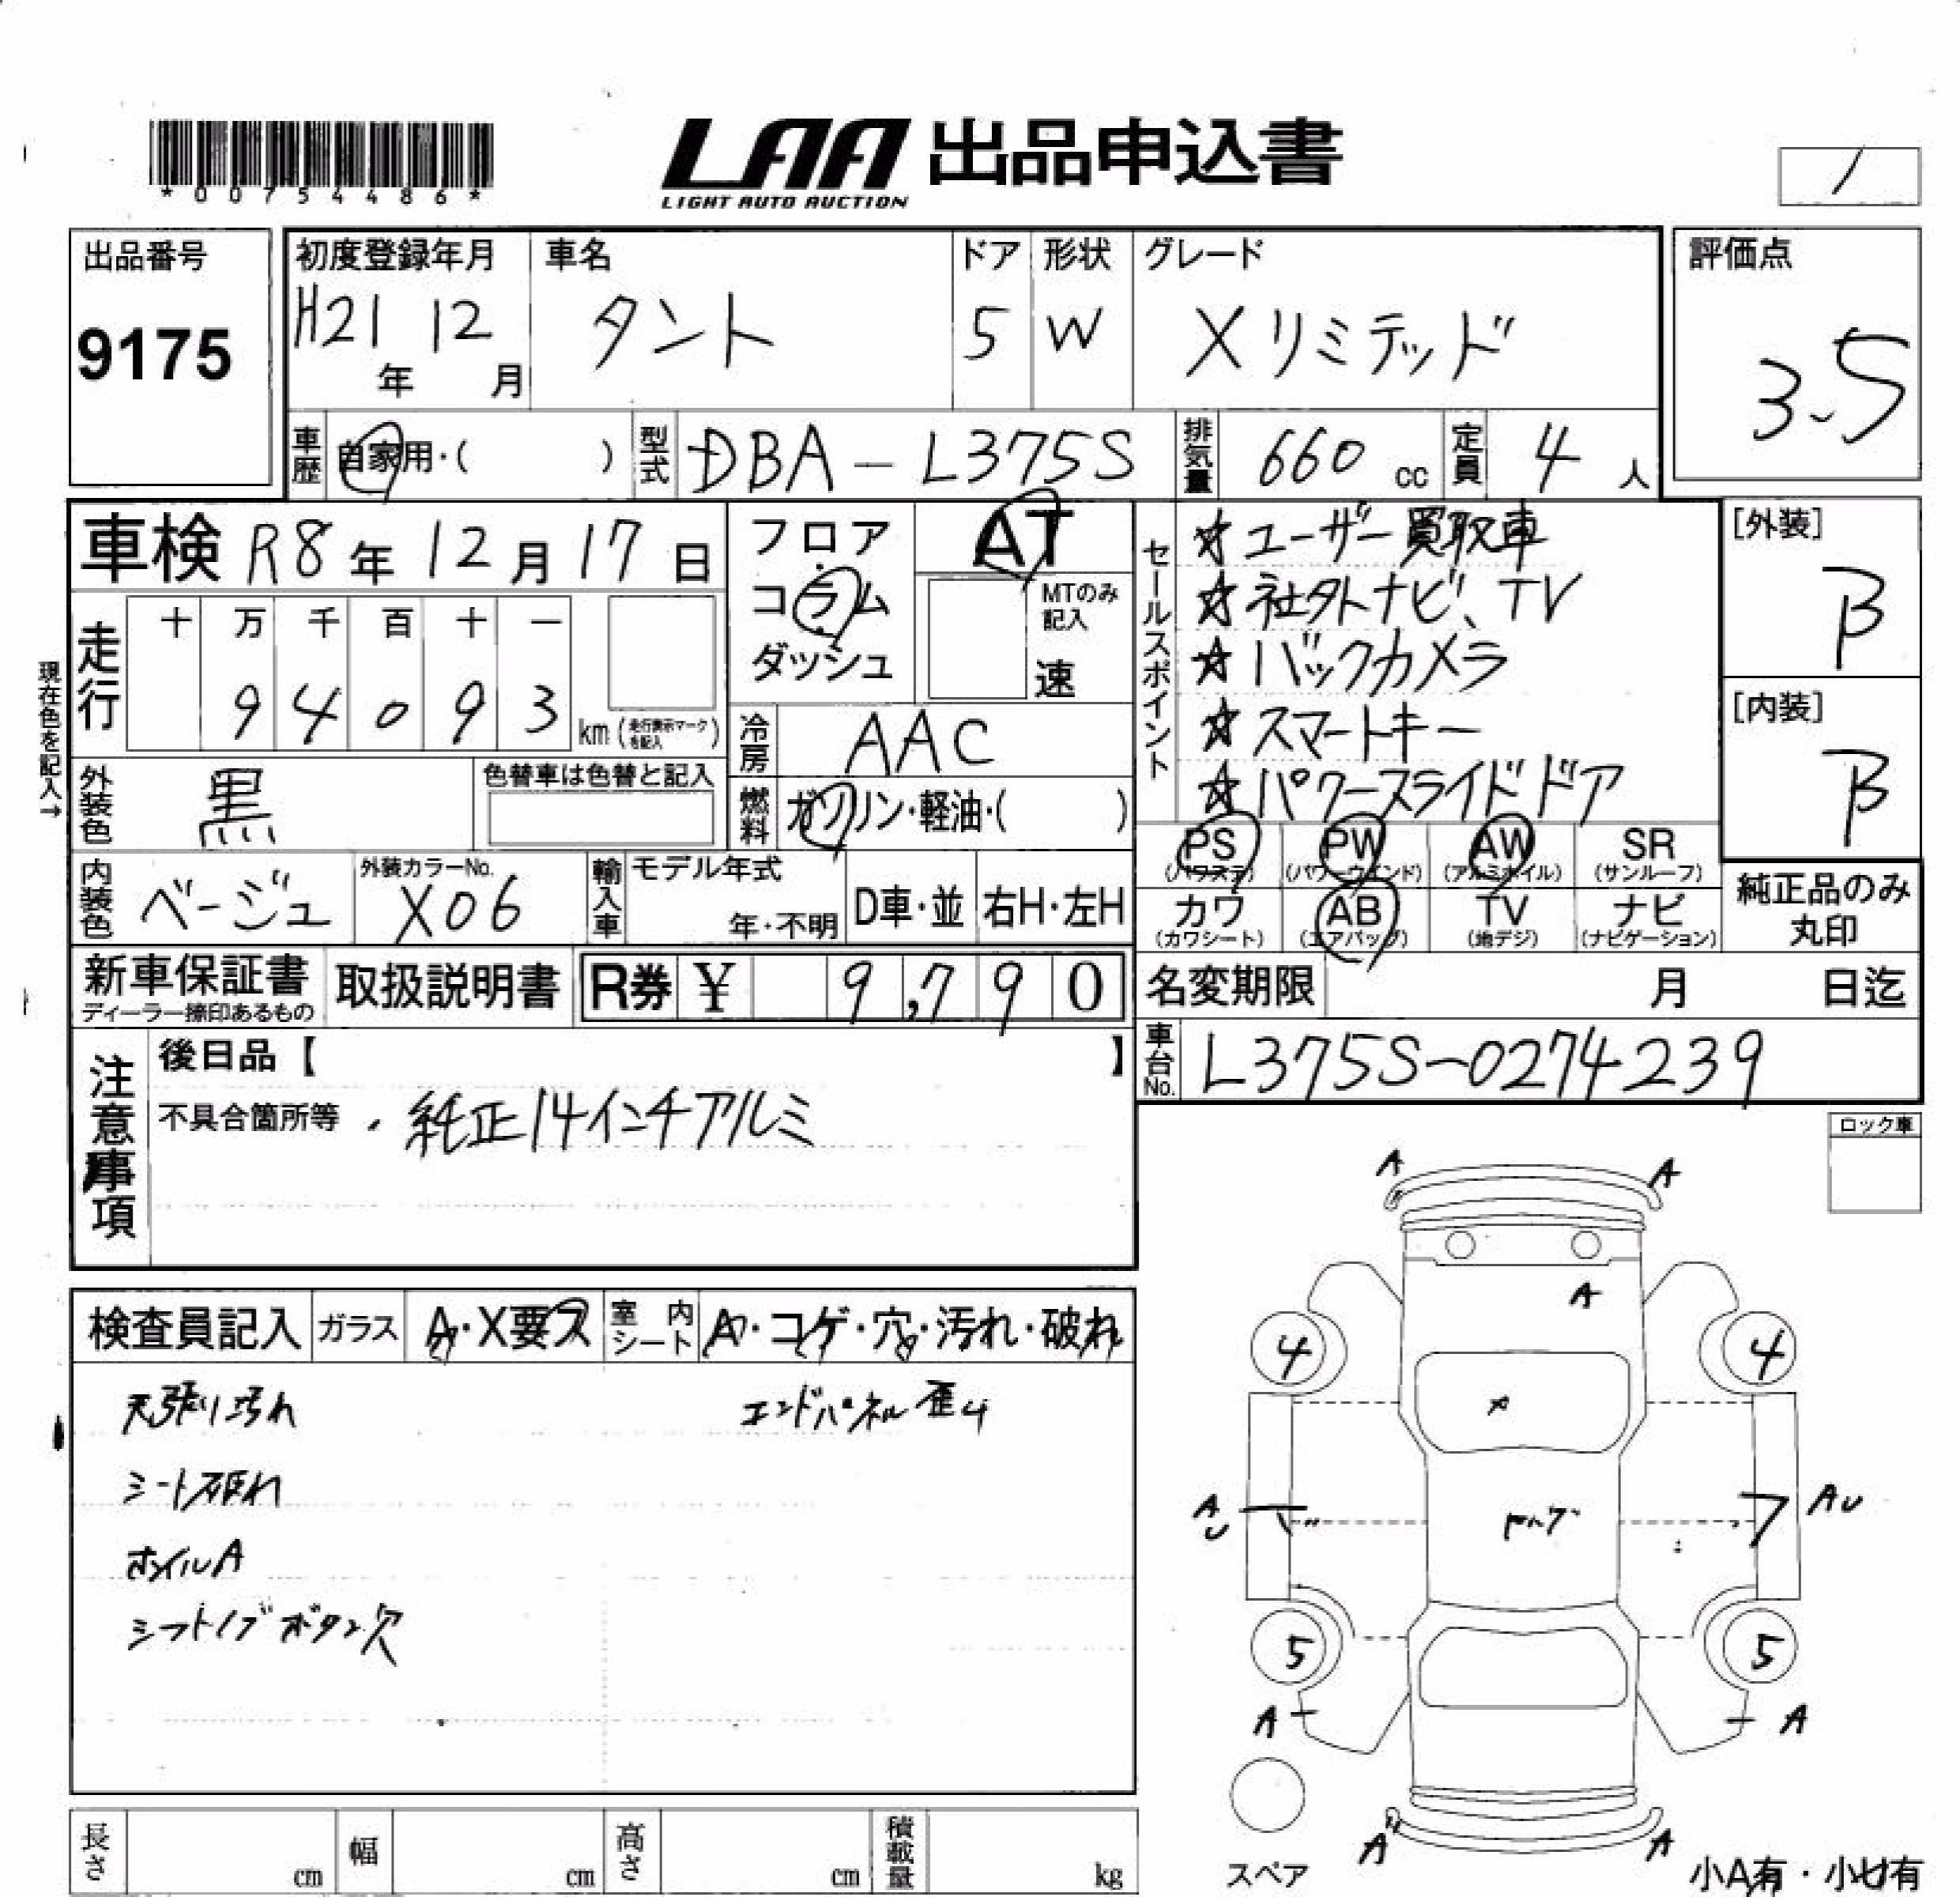 *00754486*
LAA 出品申込書
LIGHT AUTO AUCTION
/
出品番号
9175
初度登録年月
H21年 12月
車名
タント
ドア
5
形状
W
グレード
Xリミテッド
評価点
3.5
車歴 自家用・( )
型式 DBA-L375S
排気量 660 cc
定員 4 人
車検 R8年 12月 17日
フロア
コラム
ダッシュ
AT
MTのみ
記入
速
セールスポイント
☆ユーザー買取車
☆社外ナビ、TV
☆バックカメラ
☆スマートキー
☆パワースライドドア
[外装]
B
[内装]
B
現在色を記入→
走行
十 万 千 百 十 一
9 4 0 9 3
km (走行表示マークを記入)
冷房 AAC
外装色 黒
色替車は色替と記入
燃料 ガソリン・軽油・( )
PS (パワステ)
PW (パワーウインド)
AW (アルミホイル)
SR (サンルーフ)
カワ (カワシート)
AB (エアバッグ)
TV (地デジ)
ナビ (ナビゲーション)
純正品のみ
丸印
内装色 ベージュ
外装カラーNo.
X06
輸入車
モデル年式
年・不明
D車・並
右H・左H
新車保証書
ディーラー捺印あるもの
取扱説明書
R券 ¥ 9,790
名変期限 月 日迄
車台No. L375S-0274239
注意事項
後日品【 】
不具合箇所等 ・純正14インチアルミ
ロック車
検査員記入
ガラス A・X要ス
室内シート A・コゲ・穴・汚れ・破れ
天張り汚れ
エンドパネル歪み
シート破れ
ホイルA
シフトノブボタン欠
A A
A
4 4
A U
AU
5 5
A A
A A
スペア
小A有・小U有
長さ cm
幅 cm
高さ cm
積載量 kg